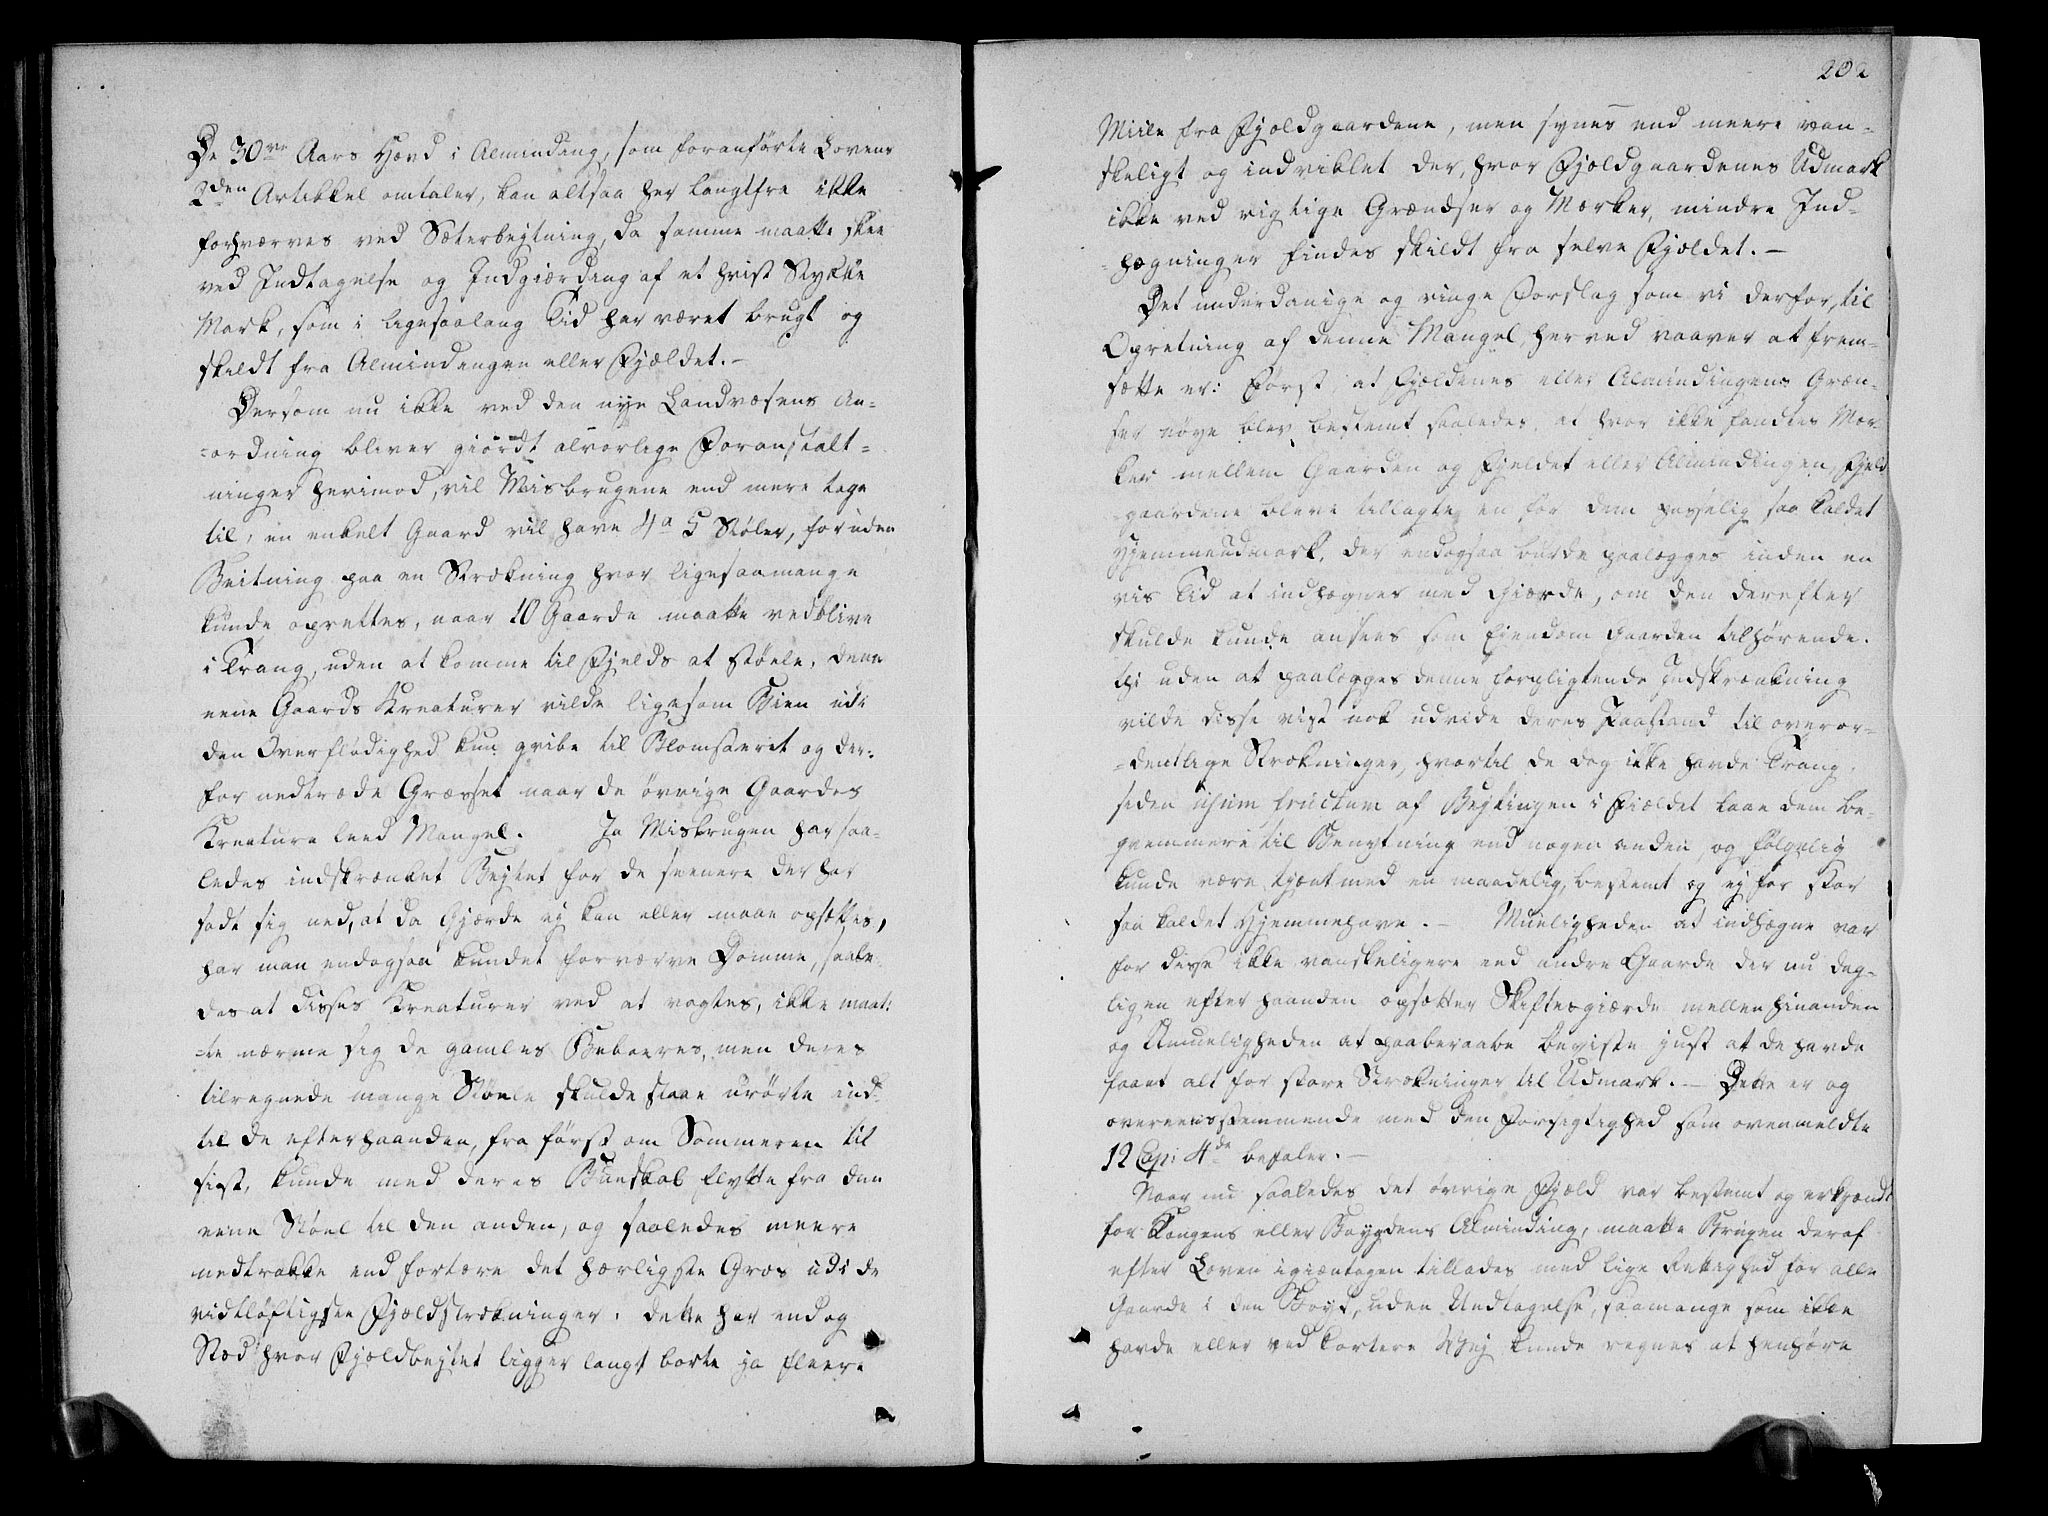 De 30ve Aars Hævd i Alminding, som foranførte Lovens
2den Artikkel omtaler, kan altsaa her langtfra ikke
forhværves ved Sæterbejtning, da samme maatte skee
ved Indtagelse og Indgiærding af et hvist Stykke
Mark, som i ligesaalang Tid har været brugt og
skildt fra Almindingen eller Fjældet. -
Dersom nu ikke ved den nye Landvæsens An-
-ordning bliver giordt alvorlige Foranstalt-
ninger herimod, vil Misbrugene end mere tage
til, en enkelt Gaard vil have 4 a 5 Støler, foruden
Beitning paa en Strækning hvor ligesaamange
kunde oprettes, naar 10 Gaarde maatte vedblive
i Trang, uden at komme til Fjelds at støele, denn
eene Gaards Kreaturer vilde ligesom Bien udi
den Overflødighed kun gribe til Blomsterit og der-
for nedtræde Græsset naar de øvrige Gaardes
Kreature leed Mangel. Ja Misbrugen har saa-
ledes indskrænket Bejtet for de seenere der har
sadt sig ned, at da Gjærde ej kan eller maae opsættes,
har man endogsaa kundet forværve Domme, saale
des at disses Kreaturer ved at vogtes, ikke maat-
-te nærme sig de gamles Beboeres, men deres
tilregnede mange Støele skulde staae urørte ind-
til de efterhaanden, fra først om Sommeren til
sist, kunde med deres Buskab flytte fra den
eene Støel til den anden, og saaledes meere
nedtrække end fortære det herligste Græs udi de
vidtløftigste Fjældstrækninger. dette har endog
Stæd hvor Fjældbejtet ligger langt borte ja fleere
202
Miile fra Fjeldgaardene, men synes end meere van-
skeligt og indviklet der, hvor Fjeldgaardenes Udmark
ikke ved rigtige Grændser og Mærker, mindre Ind-
-hægninger findes skildt fra selve Fjeldet. -
Det underdanige og ringe Forslag som vi derfor, til
Opretning af denne Mangel, herved vaaver at frem-
sætte er: Først, at Fjeldenes eller Almindingens Græn-
ser nøye blev bestemt saaledes, at hvor ikke fandtes Mær-
ker mellem Gaarden og Fjeldet eller Almindingen, Fjeld
gaardene bleve tillagte en for dem passelig saa kaldet
Hjemmeudmark, der endogsaa burde paalægges inden en
vis Tid at indhægnes med Giærde, om den derefter
skulde kunde ansees som Ejendom Gaarden tilhørende.
thi uden at paalægges denne forpligtende Indskrænkning
vilde disse vist nok udvide deres Paastand til overor-
-dentlige Strækninger, hvortil de dog ikke havde Trang,
siden usum fructum af Bejtingen i Fiældet laae dem be-
qvemmere til Benytning end nogen anden, og følgelig
kunde være tjent med en maadelig, bestemt og ej for stor
saa kaldet Hjemmehave. - Mueligheden at indhægne var
for disse ikke vanskeligere end andre Gaarde der nu dag-
ligen efterhaanden opsætter Skiftesgiærde mellem hinanden
og Umueligheden at paaberaabe beviste just at de havde
faaet alt for store Strækninger til Udmark. - Dette er og
overeensstemmende med den Forsigtighed som ovenmeldte
12 Cap: 4de befaler. -
Naar nu saaledes det øvrige Fjæld var bestemt og erkjendt
for Kongens eller Bøygdens Alminding, maatte Brugen deraf
efter Loven igiæntagen tillades med lige Rettighed for alle
Gaarde i den Boyd, uden Undtagelse, saamange som ikke
havde eller ved kortere Vej kunde regnes at henhøre